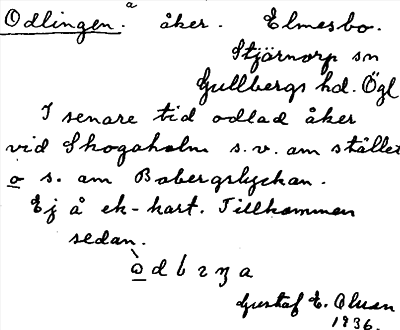 Odlingen. a åker. Elmesbo.
Stjärnorp sn
Gullbergs hd. Ögl
I senare tid odlad åker
vid Skogaholm s.v. om stället
o s. om Bobergslyckan.
Ej å ek-kart. Tillkommen
sedan.
Gustaf E. Olson
1936.